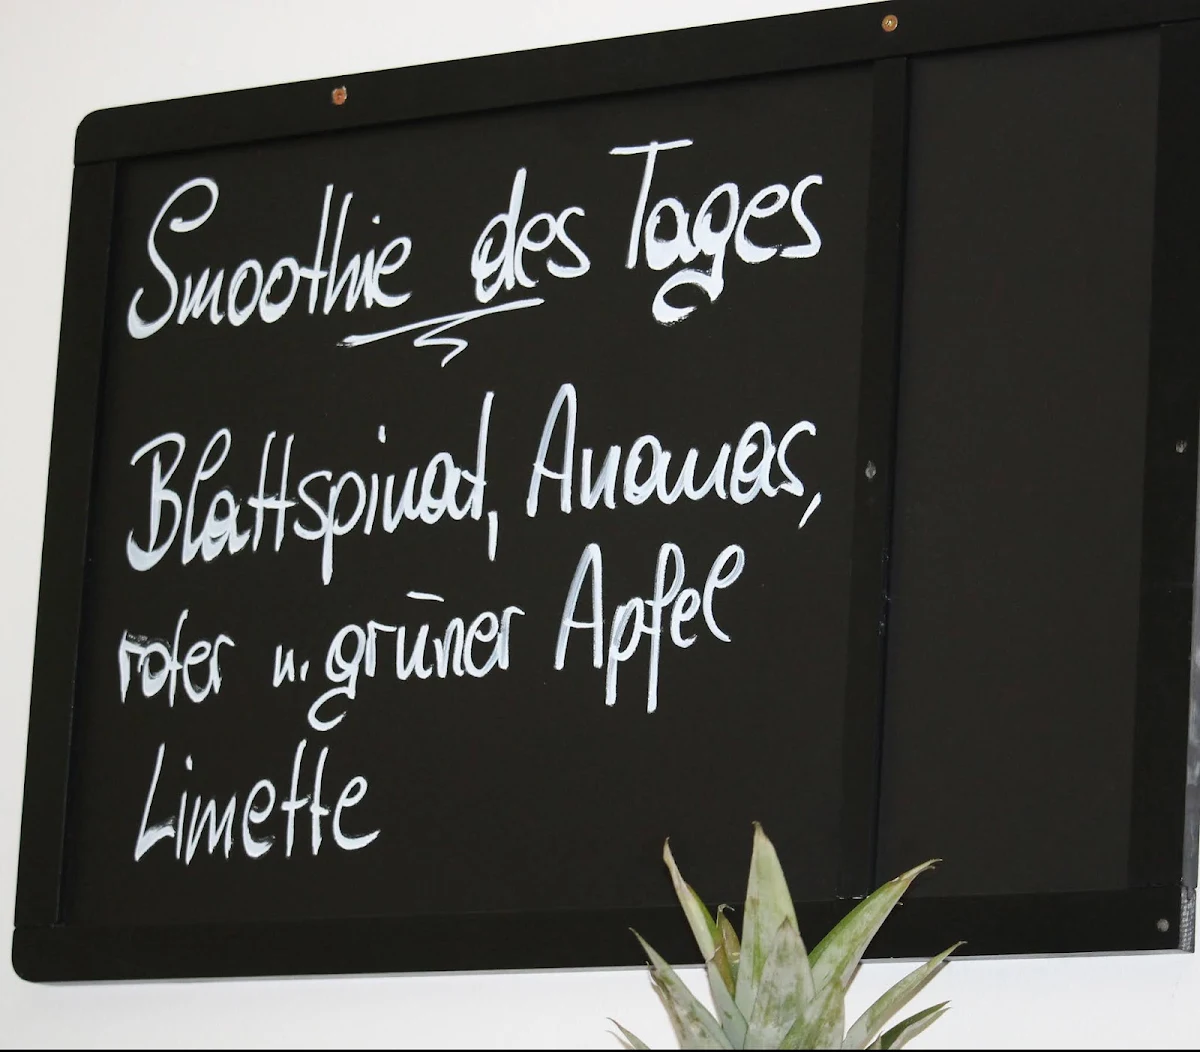 Smoothie des Tages
Blattspinat, Ananas,
roter u. grüner Apfel
Limette